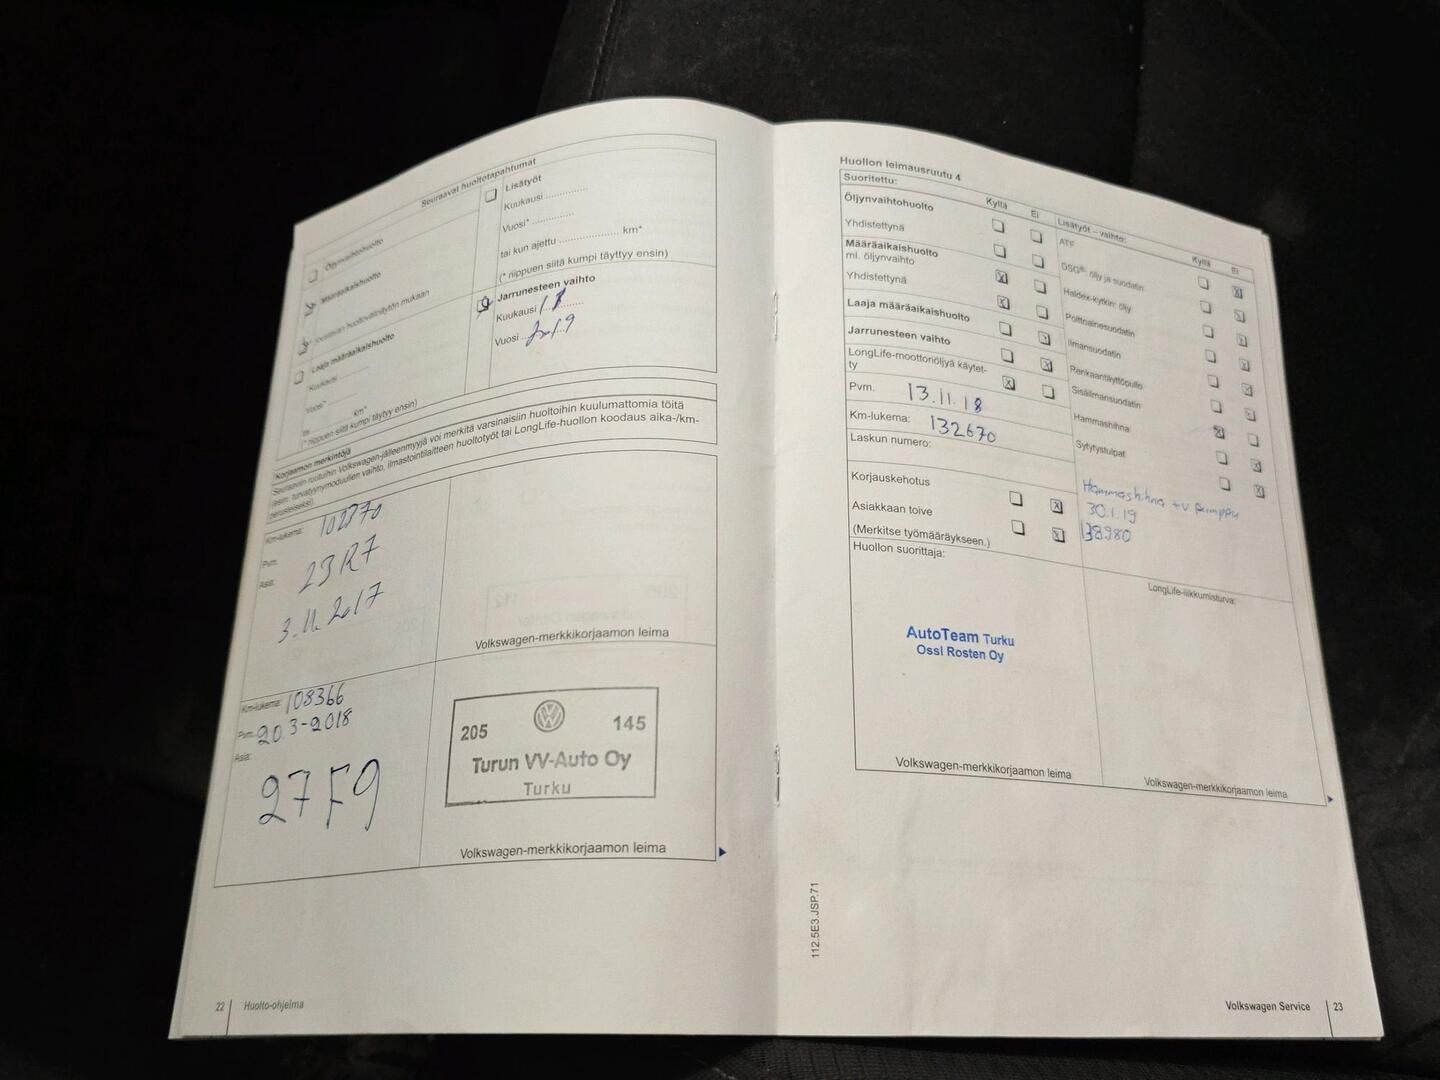 Seuraavat huoltotapahtumat
Öljynvaihtohuolto
Määräaikaishuolto
huoltovälinäytön mukaan
Laaja määräaikaishuolto
Kuukausi
Vuosi*
km*
(* riippuen siitä kumpi täyttyy ensin)
Lisätyöt
Kuukausi
Vuosi*
tai kun ajettu km*
(* riippuen siitä kumpi täyttyy ensin)
Jarrunesteen vaihto
Kuukausi
Vuosi 2019
Korjaamon merkintöjä
Seuraaviin ruutuihin Volkswagen-jälleenmyyjä voi merkitä varsinaisiin huoltoihin kuulumattomia töitä
(esim. turvatyynymoduulien vaihto, ilmastointilaitteen huoltotyöt tai LongLife-huollon koodaus aika-/km-
perusteiseksi).
Km-lukema: 102870
Pvm.
Asia: 23R7
3.11.2017
Volkswagen-merkkikorjaamon leima
Km-lukema: 108366
Pvm. 20.3-2018
Asia:
27F9
205 145
Turun VV-Auto Oy
Turku
Volkswagen-merkkikorjaamon leima
22 Huolto-ohjelma
Huollon leimausruutu 4
Suoritettu:
Kyllä Ei
Öljynvaihtohuolto
Yhdistettynä
Määräaikaishuolto
ml. öljynvaihto
Yhdistettynä
Laaja määräaikaishuolto
Jarrunesteen vaihto
LongLife-moottoriöljyä käytet-
ty
Pvm. 13.11.18
Km-lukema: 132670
Laskun numero:
Korjauskehotus
Asiakkaan toive
(Merkitse työmääräykseen.)
Huollon suorittaja:
AutoTeam Turku
Ossi Rosten Oy
Volkswagen-merkkikorjaamon leima
Lisätyöt – vaihto:
Kyllä Ei
ATF
DSG®: öljy ja suodatin
Haldex-kytkin: öljy
Polttoainesuodatin
Ilmansuodatin
Renkaantäyttöpullo
Sisäilmansuodatin
Hammashihna
Sytytystulpat
Hammashihna + v. pumppu
30.1.19
138980
LongLife-liikkumisturva:
Volkswagen-merkkikorjaamon leima
112.5E3.JSP.71
Volkswagen Service 23